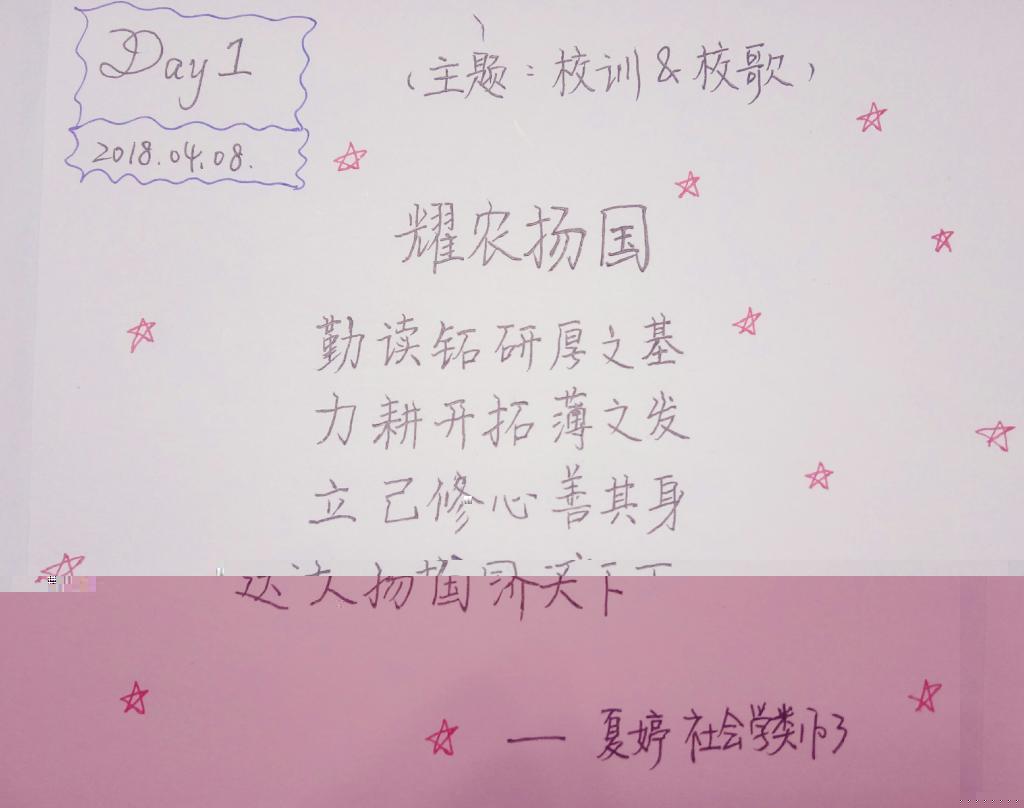 Day 1
(主题：校训 & 校歌)
2018.04.08.
耀农扬国
勤读钻研厚之基
力耕开拓薄之发
立己修心善其身
达人扬国济天下
—— 夏婷 社会学类